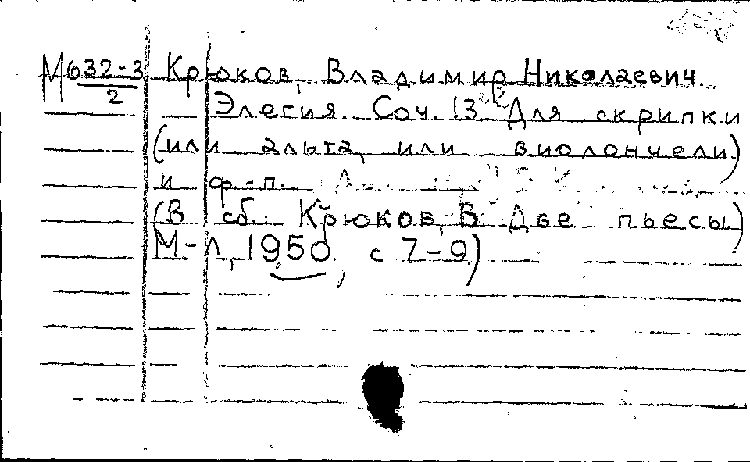 М632-3 Крюков, Владимир Николаевич.
2
Элегия. Соч. 13 Для скрипки
(или альта, или виолончели)
и ф-п.
(В сб.: Крюков, В. Две пьесы)
М-Л, 1950, с 7-9)